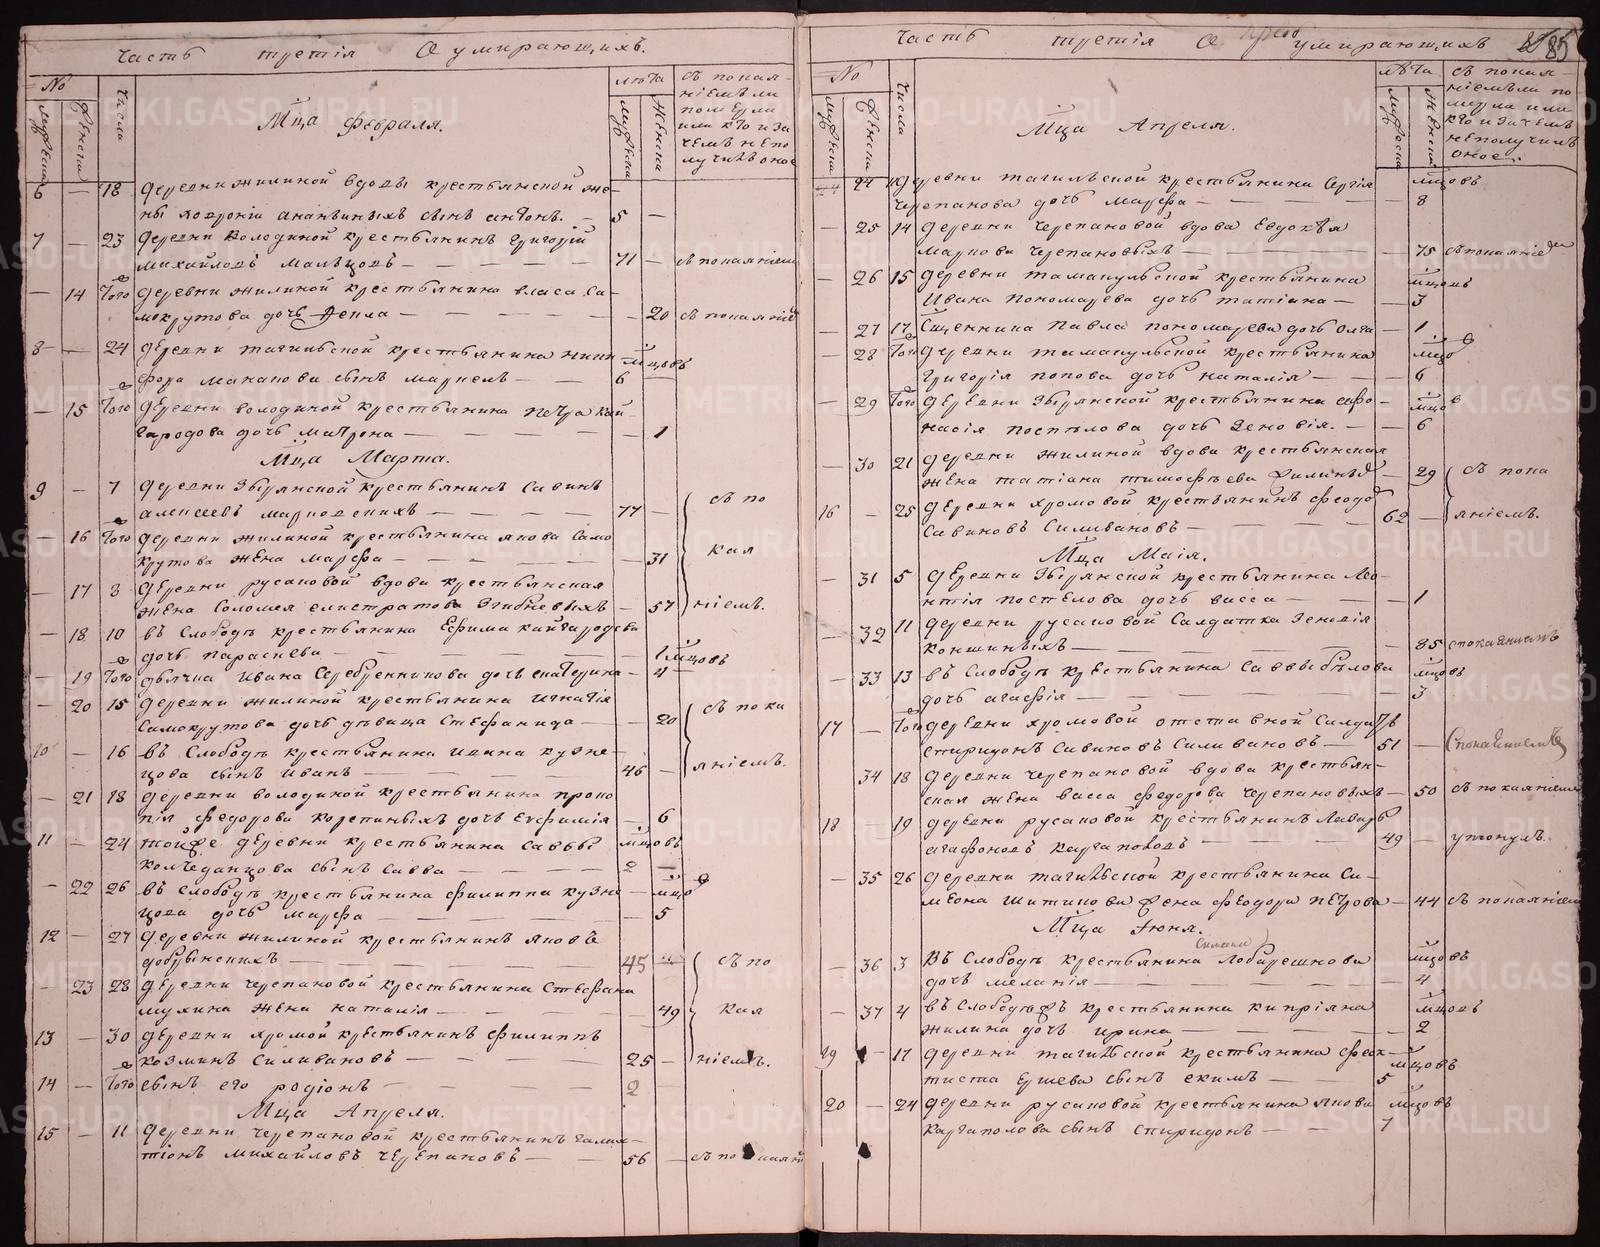 Часть третія О умирающихъ.
№
мужеска
женска
числа
Мца февраля.
лѣта
мужеска
женска
съ покая-
ніемъ ли
померли
или кто и за
чемъ непо
лучилъ оное
6 — 18 деревни жилиной вдовы крестьянской же-
ны ховроніи ананьиныхъ сынъ антонъ. — 5 —
7 — 23 деревни Володиной крестьянинъ григорій
михайловъ мальцовъ — 71 — съ покаяніемъ
— 14 того деревни жилиной крестьянина власа са-
мокрутова дочь Фекла — 20 съ покаяніе
8 — 24 деревни тагильской крестьянина ники мцовъ
фора маканова сынъ маркелъ — 6
— 15 того деревни володиной крестьянина петра кай-
городова дочь матрона — 1
Мца Марта.
9 — 7 деревни Зырянской крестьянинъ савинъ
алексеевъ — 77 — съ по
— 16 того деревни жилиной крестьянина якова само
крутова жена марфа — 31 кая
— 17 8 деревни русаковой вдова крестьянская
жена соломея елистратова — 57 ніемъ.
— 18 10 въ слободѣ крестьянина Ефима кайгародова
дочь параскева — 1 мцовъ
— 19 того дьячка ивана Серебренникова дочь екатерина — 4
— 20 15 деревни жилиной крестьянина игнатія съ пока
самокрутова дочь дѣвица Стефанида — 20
10 — 16 въ слободѣ крестьянина ивана кузне- яніемъ.
цова сынъ иванъ — 46 —
— 21 18 деревни володиной крестьянина проко
пія федорова корепиныхъ дочь Евфимія — 6
11 — 24 тойже деревни крестьянина саввы мцовъ
комчеданцова сынъ савва — 2 —
— 22 26 въ слободѣ крестьянина филиппа кузне — мцо
цова дочь марфа — 5
12 — 27 деревни жилиной крестьянинъ яковъ
добрынскихъ — 45 — съ по
— 23 28 деревни черепановой крестьянина Стефана
мухина жена наталія — 49 кая
13 — 30 деревни хромой крестьянинъ филиппъ
козминъ Силивановъ — 25 — ніемъ.
14 — того сынъ его родіонъ — 2
Мца Апреля.
15 — 11 деревни черепановой крестьянинъ галак-
тіонъ михайловъ черепановъ — 56 — съ покаяні
Часть третія О умирающихъ 85
№
мужеска
женска
числа
Мца Апреля.
лѣта
мужеска
женска
съ покая-
ніемъ ли по
мерли или
кто и за чемъ
неполучилъ
оное.
24 11 деревни тагильской крестьянина Сергія мцовъ
черепанова дочь марфа — 8
— 25 14 деревни черепановой вдова Евдокѣя
маркова черепановыхъ — 75 съ покаяніе
— 26 15 деревни тамакульской крестьянина мцовъ
ивана пономарева дочь татіана — 3
— 27 17 Сщенника павла пономарева дочь олга — 1
— 28 того деревни тамакульской крестьянина мцо
григорія попова дочь наталія — 6
— 29 того деревни зырянской крестьянина афо- мцо
насія поспѣлова дочь зеновія. — 6
— 30 21 деревни жилиной вдова крестьянская
жена татіана тимофѣева — 29 съ пока
16 — 25 деревни хромовой крестьянинъ феодо
савиновъ Силивановъ — 62 — яніемъ.
Мца Маія.
— 31 5 деревни Зырянской крестьянина лео-
нтія поспелова дочь васса — 1
— 32 11 деревни русаковой салдатка зеновія
кокшиныхъ — 85 спокаяниемъ
— 33 13 въ слободѣ крестьянина саввы бѣлова мцовъ
дочь агафія — 3
17 — того деревни хромовой отставной салдатъ
спиридонъ савиновъ Силивановъ — 51 — спокаяниемъ
34 18 деревни черепановой вдова крестьян-
ская жена васса федорова черепановыхъ — 50 съ покаяніем
18 — 19 деревни русаковой крестьянинъ лавръ
агафоновъ каргаполовъ — 49 — утонулъ.
— 35 26 деревни тагильской крестьянина си-
меона шитикова жена феодора петрова — 44 съ покаяніем
Мца Июня.
— 36 3 Въ слободѣ крестьянина лобарешкова мцовъ
дочь меланія — 4
— 37 4 въ слободѣ крестьянина кипріяна мцовъ
жилина дочь ирина — 2
19 — 17 деревни тагильской крестьянина феок- мцовъ
тиста Ершева сынъ екимъ — 5
20 — 24 деревни русаковой крестьянина якова мцовъ
каргаполова сынъ спиридонъ — 7